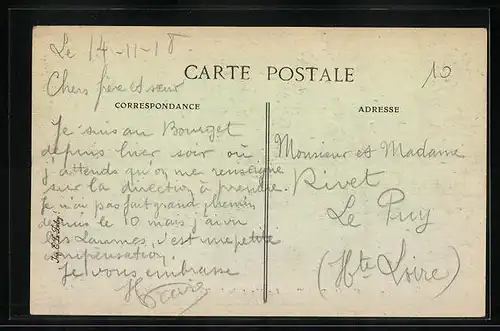 Le 14-11-18
CARTE POSTALE
10
Chers frère et sœur
CORRESPONDANCE
ADRESSE
Je suis au Bourget
depuis hier soir où
j'attends qu'on me renseigne
sur la direction à prendre.
Je n'ai pas fait grand chemin
depuis le 10 mais j'ai vu
les Laumes, c'est une petite
compensation.
Je vous embrasse
Monsieur et Madame
Rivet
Le Puy
(Hte Loire)